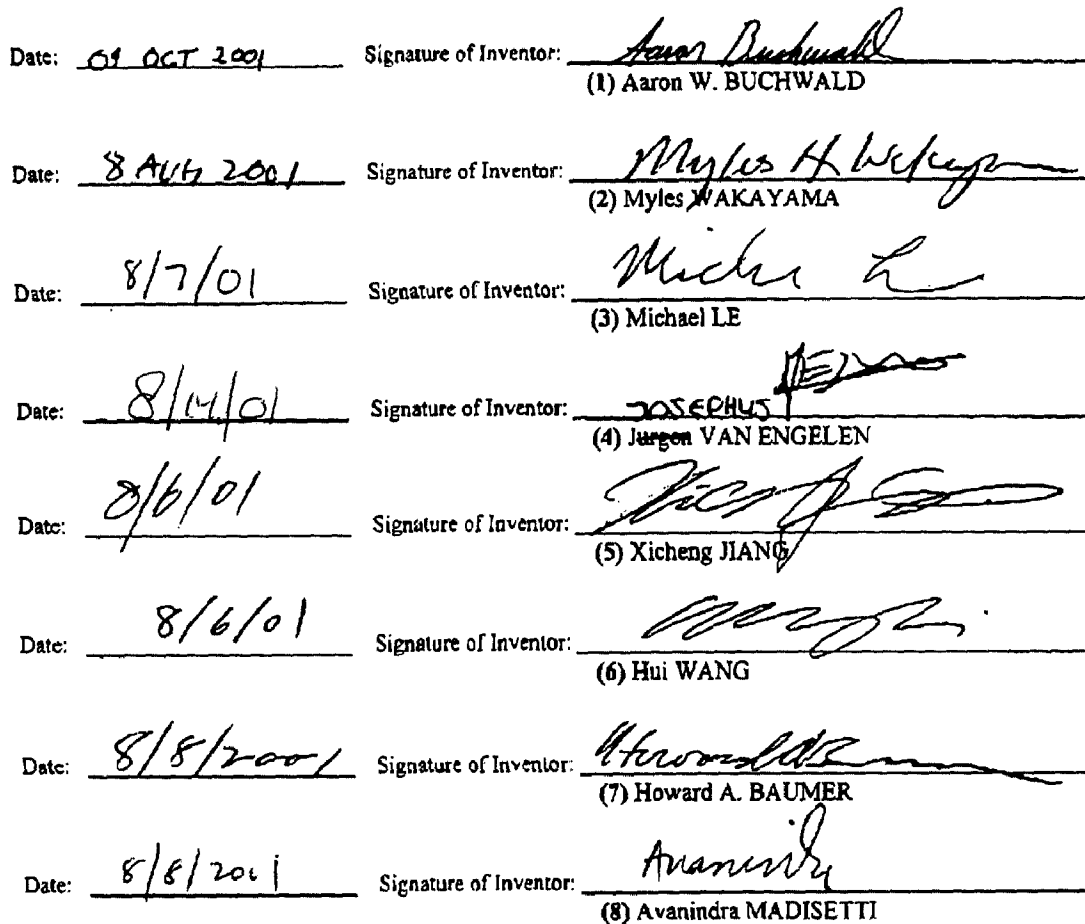 Date: 09 OCT 2001 Signature of Inventor: Aaron Buchwald
(1) Aaron W. BUCHWALD
Date: 8 AUG 2001 Signature of Inventor: Myles H Wakayama
(2) Myles WAKAYAMA
Date: 8/7/01 Signature of Inventor: Michael Le
(3) Michael LE
Date: 8/14/01 Signature of Inventor: JOSEPHUS
(4) Jurgen VAN ENGELEN
Date: 8/6/01 Signature of Inventor:
(5) Xicheng JIANG
Date: 8/6/01 Signature of Inventor:
(6) Hui WANG
Date: 8/8/2001 Signature of Inventor:
(7) Howard A. BAUMER
Date: 8/8/2001 Signature of Inventor:
(8) Avanindra MADISETTI